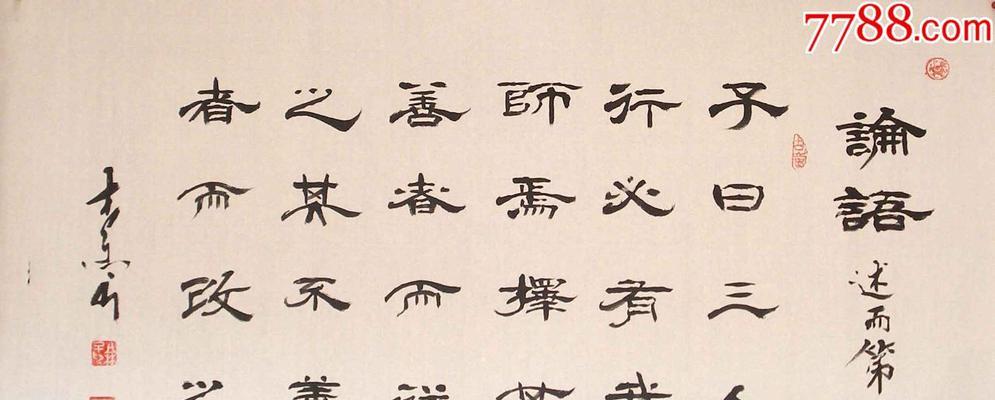 7788.com
論語 述而第
子曰三人
行必有我
師焉擇其
善者而從
之其不善
者而改之